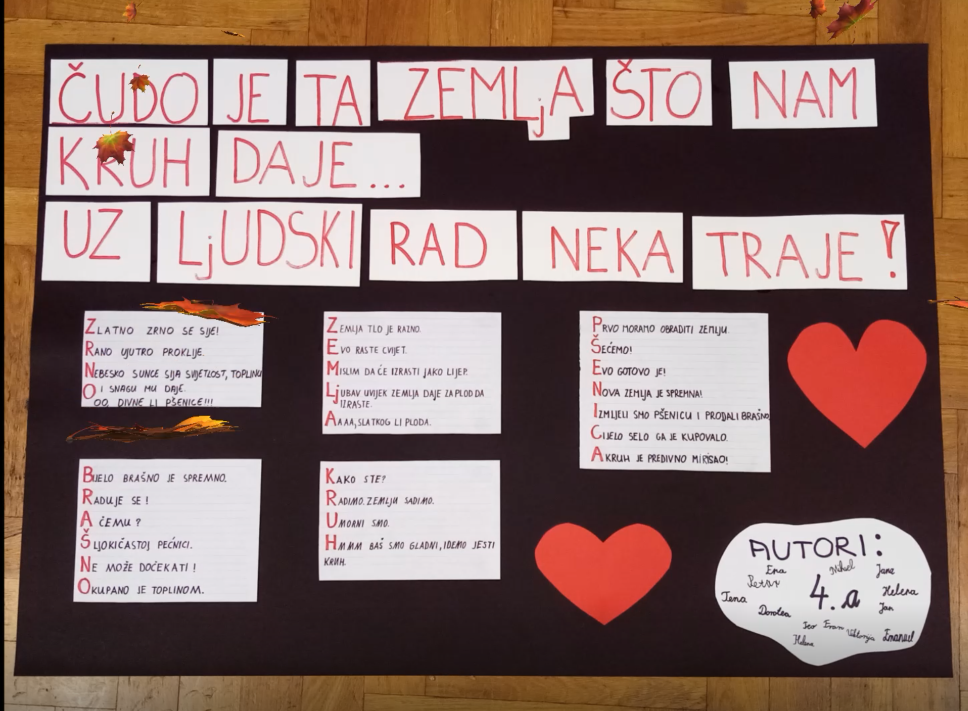 ČUDO JE TA ZEMLjA ŠTO NAM
KRUH DAJE...
UZ LjUDSKI RAD NEKA TRAJE!
ZLATNO ZRNO SE SIJE!
RANO UJUTRO PROKLIJE.
NEBESKO SUNCE SIJA SVJETLOST, TOPLINU
I SNAGU MU DAJE.
OO, DIVNE LI PŠENICE!!!
ZEMLJA TLO JE RAZNO.
EVO RASTE CVIJET.
MISLIM DA ĆE IZRASTI JAKO LIJEP.
LjUBAV UVIJEK ZEMLJA DAJE ZA PLOD DA
IZRASTE.
AAAA, SLATKOG LI PLODA.
PRVO MORAMO OBRADITI ZEMLJU.
ŠEĆEMO!
EVO GOTOVO JE!
NOVA ZEMLJA JE SPREMNA!
IZMLJELI SMO PŠENICU I PRODALI BRAŠNO
CIJELO SELO GA JE KUPOVALO.
A KRUH JE PREDIVNO MIRISAO!
BIJELO BRAŠNO JE SPREMNO.
RADUJE SE!
A ČEMU?
ŠLJOKIČASTOJ PEĆNICI.
NE MOŽE DOČEKATI!
OKUPANO JE TOPLINOM.
KAKO STE?
RADIMO. ZEMLJU SADIMO.
UMORNI SMO.
HMMM BAŠ SMO GLADNI, IDEMO JESTI
KRUH.
AUTORI:
Ena
Jane
Petar
4.a
Helena
Tena
Dorotea
Jan
Ivo
Fran
Viktorija
Emanuel
Helena